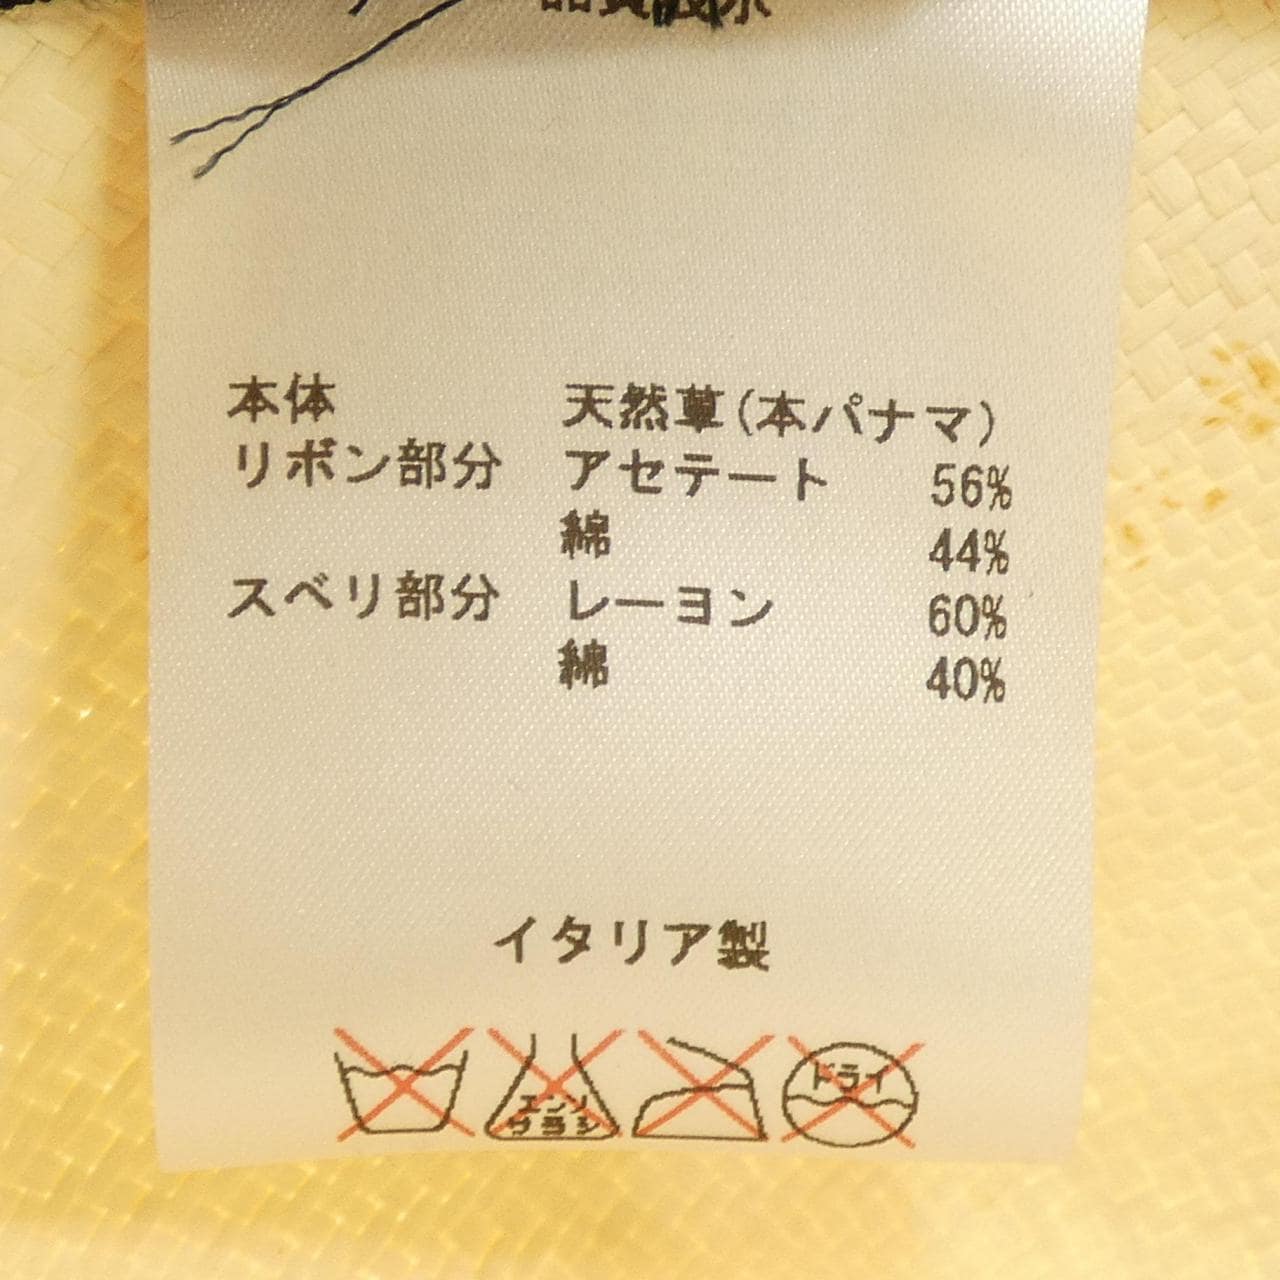 品質表示
本体 天然草(本パナマ)
リボン部分 アセテート 56%
綿 44%
スベリ部分 レーヨン 60%
綿 40%
イタリア製
エンソサラシ ドライ